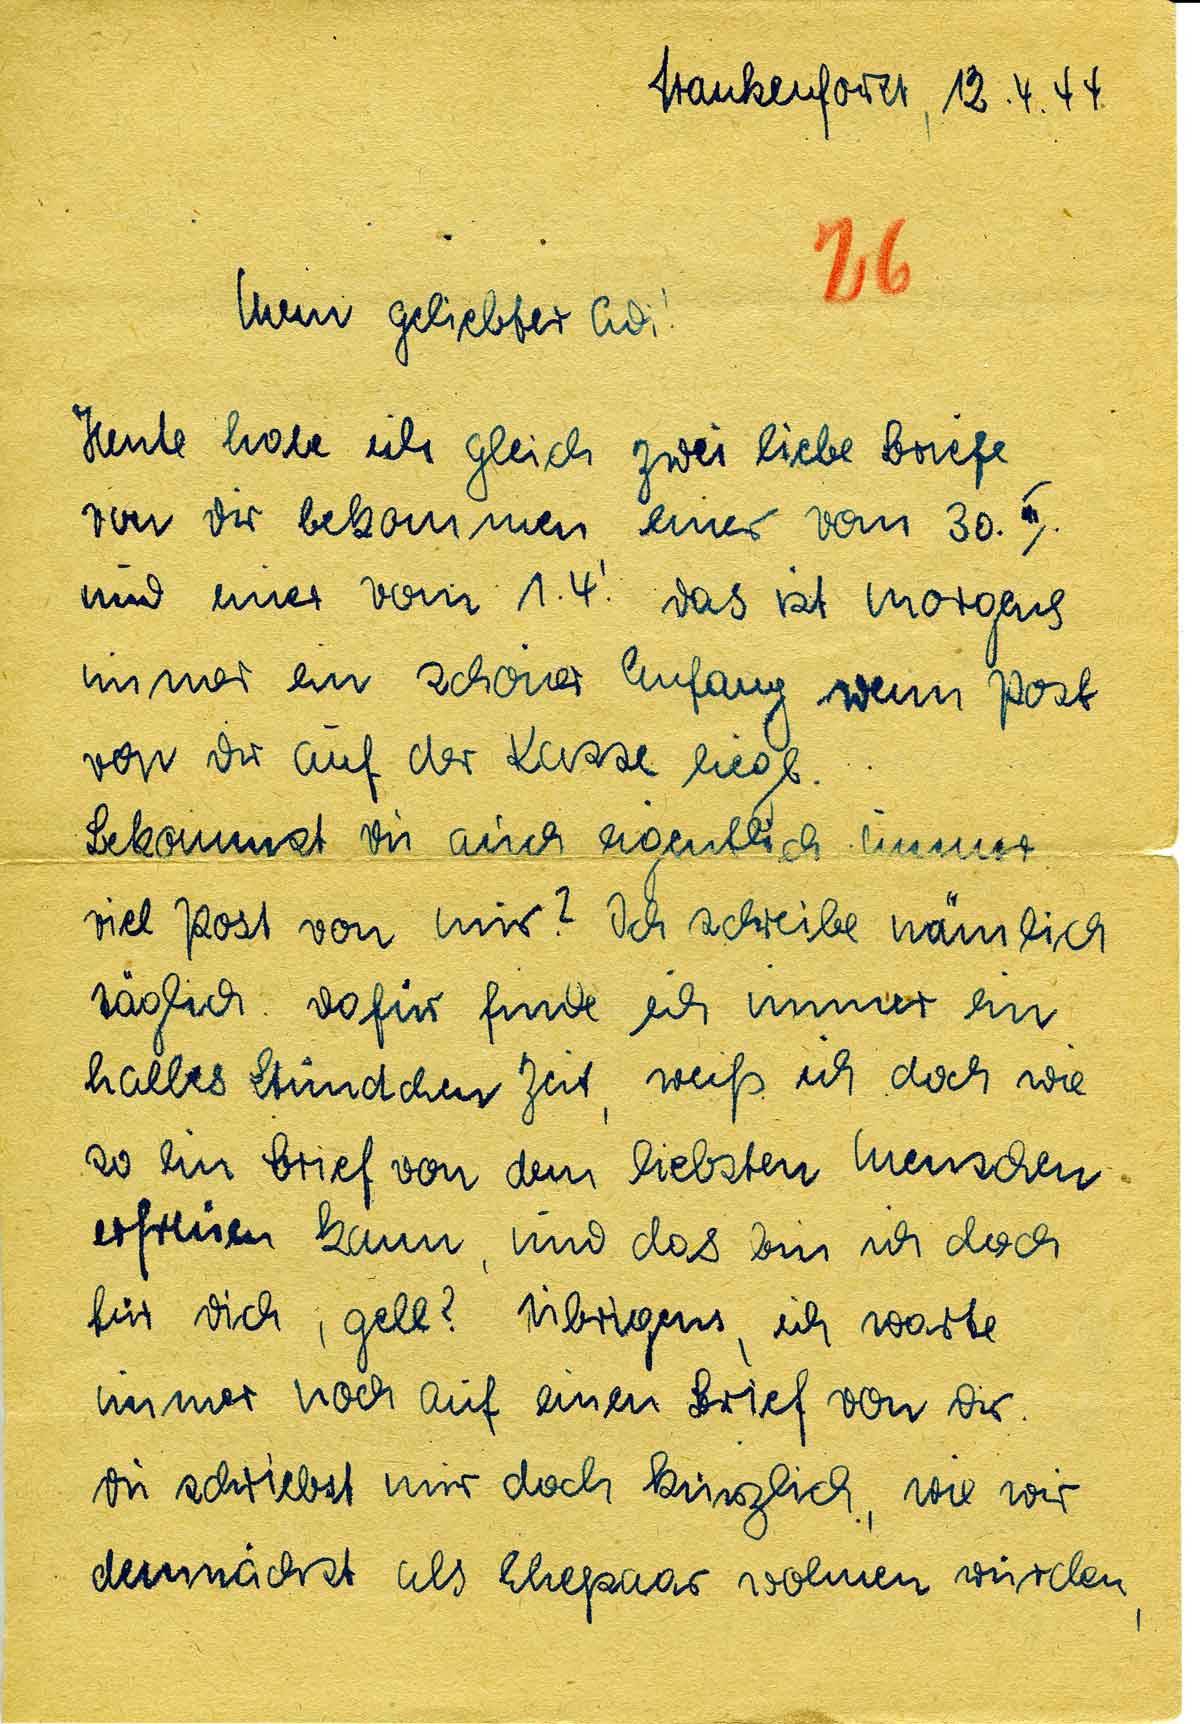 Frankenforst, 12.4.44
26
Mein geliebter Adi!
Heute habe ich gleich zwei liebe Briefe
von dir bekommen einer vom 30. III.
und einer vom 1.4! das ist morgens
immer ein schöner Anfang wenn Post
von dir auf der Kasse liegt.
Bekommst du auch eigentlich immer
viel Post von mir? Ich schreibe nämlich
täglich. dafür finde ich immer ein
halbes Stündchen Zeit, weiß ich doch wie
so ein Brief von dem liebsten Menschen
erfreuen kann, und das bin ich doch
für dich, gell? Übrigens, ich warte
immer noch auf einen Brief von dir.
du schriebst mir doch kürzlich, wie wir
demnächst als Ehepaar wohnen würden,